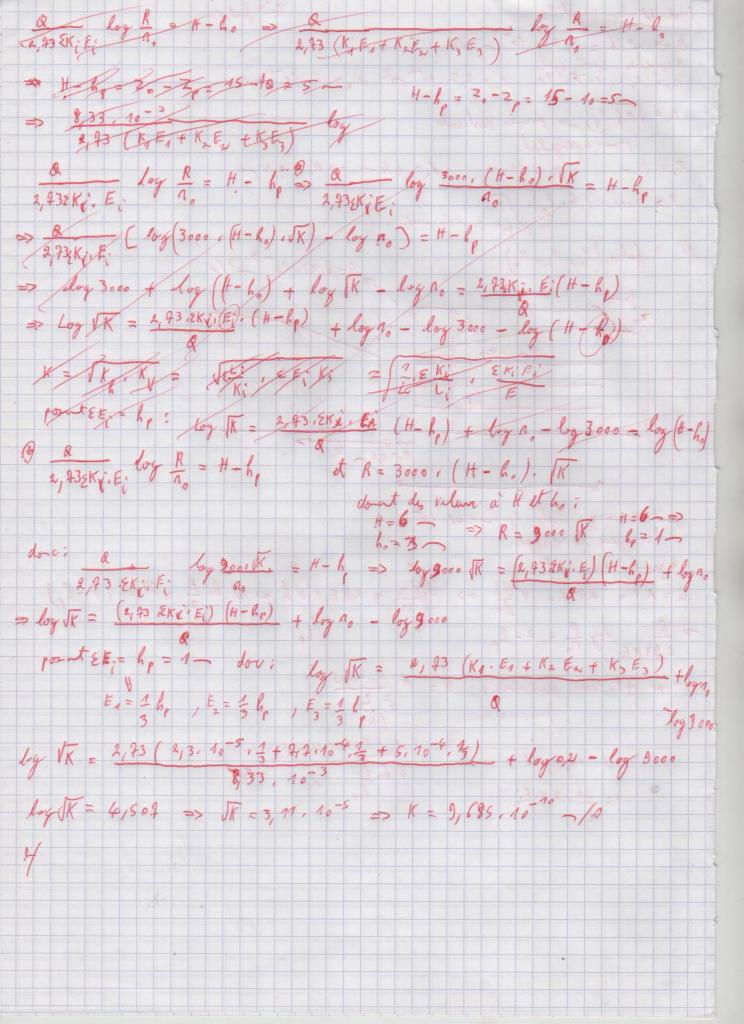 Q / 2,73 ΣKi Ei log R/r₀ = H - h₀ ⇒ Q / 2,73 (K₁E₁ + K₂E₂ + K₃E₃) log R/r₀ = H - h₀
⇒ H - hp = z₀ - zp = 15 - 10 = 5 m
H - hp = z₀ - zp = 15 - 10 = 5 m
⇒ 8,33 . 10⁻³ / 2,73 (K₁E₁ + K₂E₂ + K₃E₃) log
Q / 2,73 ΣKi . Ei log R/r₀ = H - hp ⇒ Q / 2,73 ΣKi Ei log 3000 . (H - h₀) . √K / r₀ = H - hp
⇒ Q / 2,73 ΣKi . Ei [ log(3000 . (H - h₀) . √K) - log r₀ ] = H - hp
⇒ log 3000 + log (H - h₀) + log √K - log r₀ = 2,73 ΣKi . Ei (H - hp) / Q
⇒ Log √K = 2,73 . ΣKi . (Ei) . (H - hp) / Q + log r₀ - log 3000 - log (H - hp)
K = √Kh . Kv =
posant ΣEi = hp : log √K = 2,73 . ΣKi . Ei / Q (H - hp) + log r₀ - log 3000 - log (H - h₀)
Q / 2,73 ΣKi . Ei log R/r₀ = H - hp et R = 3000 . (H - h₀) . √K
donnant des valeurs à H et h₀ :
H = 6 m ⇒ R = 9000 √K H = 6 m ⇒
h₀ = 3 m hp = 1 m
donc : Q / 2,73 . ΣKi . Ei log 9000 √K / r₀ = H - hp ⇒ log 9000 √K = (2,73 ΣKi . Ei) (H - hp) / Q + log r₀
⇒ log √K = (2,73 ΣKi . Ei) (H - hp) / Q + log r₀ - log 9000
posant ΣEi = hp = 1 m donc : log √K = 2,73 (K₁ . E₁ + K₂ E₂ + K₃ E₃) / Q + log r₀
E₁ = 1/3 hp , E₂ = 1/3 hp , E₃ = 1/3 hp
- log 9000
log √K = 2,73 ( 2,3 . 10⁻⁵ . 1/3 + 7,7 . 10⁻⁴ . 1/3 + 5 . 10⁻⁴ . 1/3 ) / 8,33 . 10⁻³ + log 0,2 - log 9000
log √K = 4,507 ⇒ √K = 3,11 . 10⁻⁵ ⇒ K = 9,685 . 10⁻¹⁰ m/s